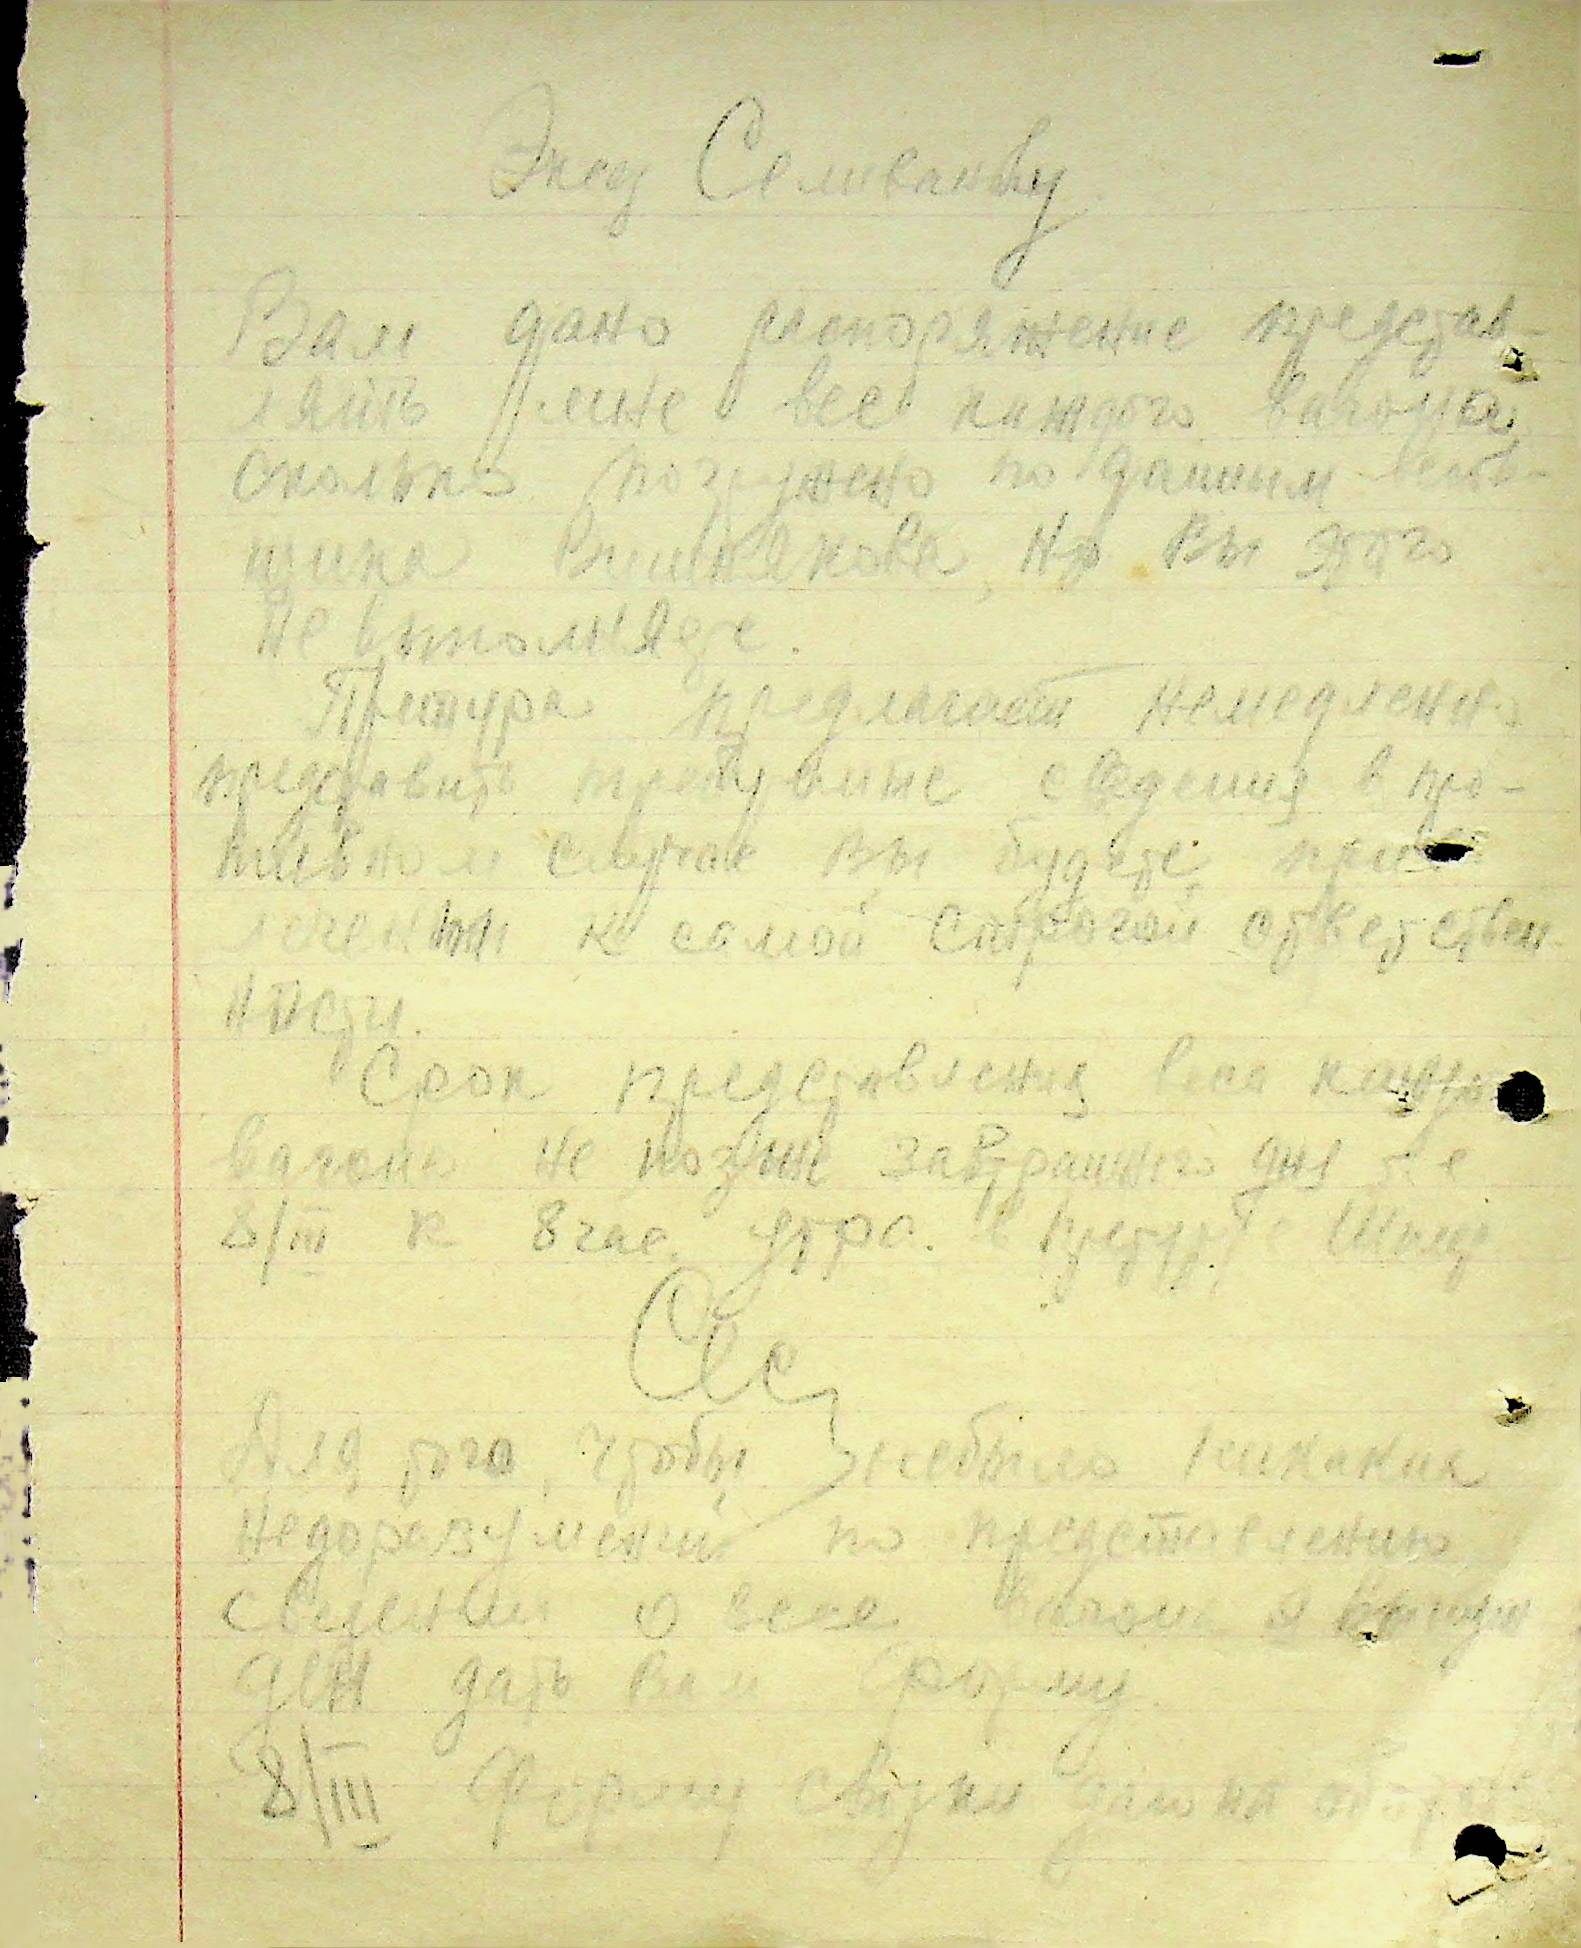 Селиванову
Вам дано распоряжение представ-
лять мне вес каждого вагона
сколько погружено по данным весов-
щика Вишнякова, но Вы этого
не выполняете.
Претура предлагает немедленно
представить требуемые сведения в про-
тивном случае Вы будете прив-
лечены к самой строгой ответствен
ности.
Срок представления веса каждого
вагона не позже завтрашнего дня т е
8/III к 8 час. утра. в претуре
Для того, чтобы небыло никаких
недоразумений по представлению
сведений о весе вагона я вынуж
ден дать Вам форму.
8/III Форму сводки дано на обороте